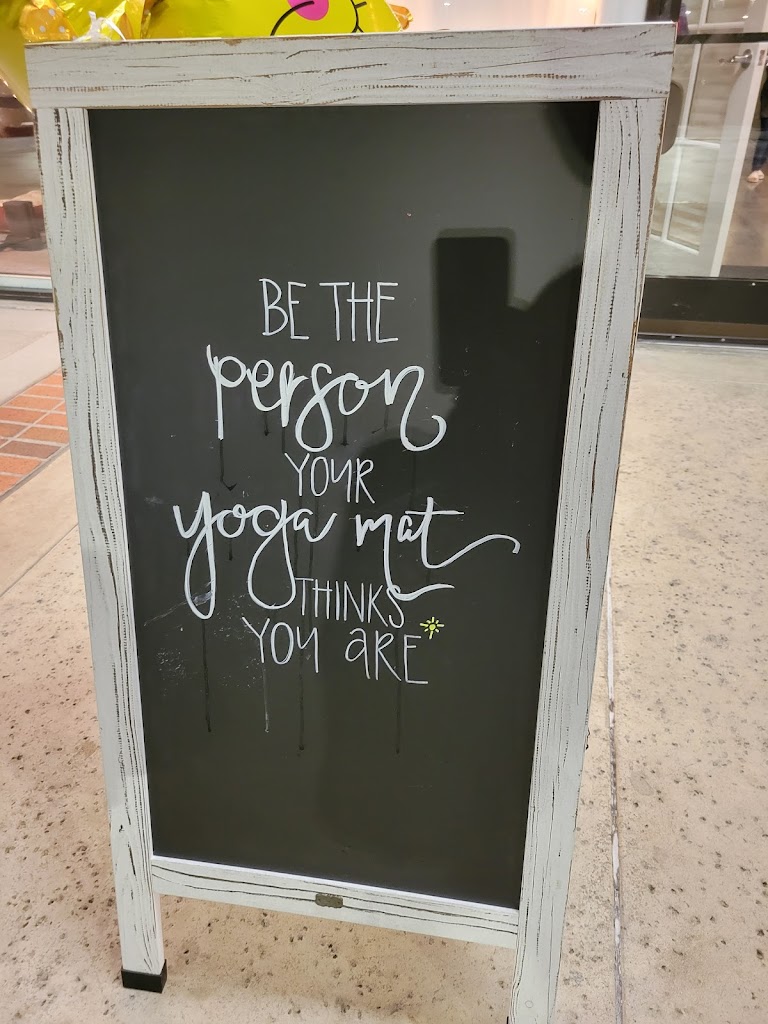 BE THE
person
YOUR
yoga mat
THINKS
YOU ARE